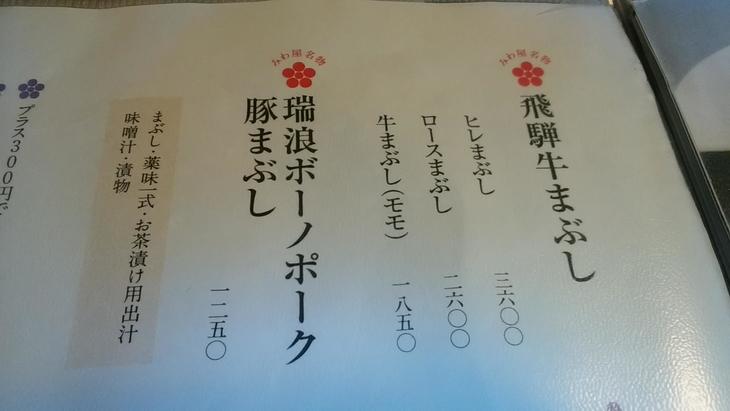 みわ屋名物
飛騨牛まぶし
ヒレまぶし 三六〇〇
ロースまぶし 二六〇〇
牛まぶし(モモ) 一八五〇
みわ屋名物
瑞浪ボーノポーク
豚まぶし
一二五〇
まぶし・薬味一式・お茶漬け用出汁
味噌汁・漬物
プラス300円で